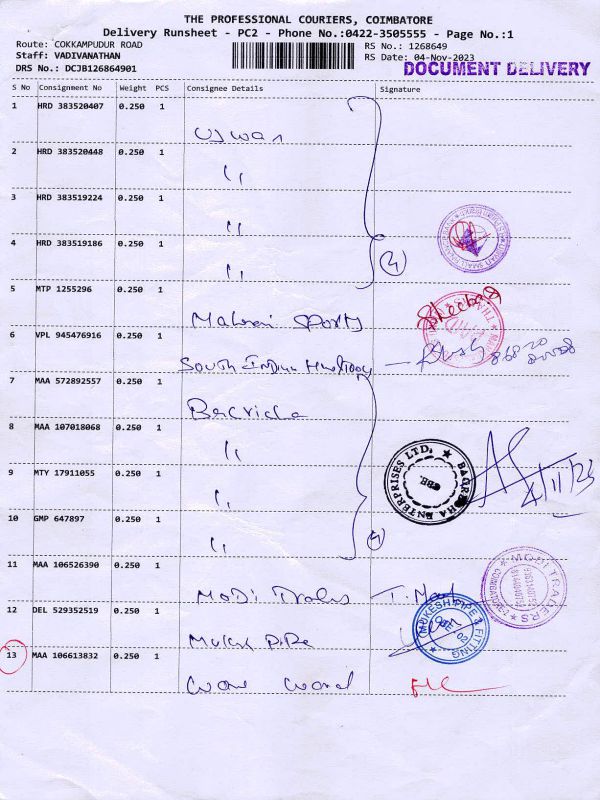 THE PROFESSIONAL COURIERS, COIMBATORE
Delivery Runsheet - PC2 - Phone No.:0422-3505555 - Page No.:1
Route: COKKAMPUDUR ROAD RS No.: 1268649
Staff: VADIVANATHAN RS Date: 04-Nov-2023
DRS No.: DCJB126864901 DOCUMENT DELIVERY
S No Consignment No Weight PCS Consignee Details Signature
1 HRD 383520407 0.250 1
2 HRD 383520448 0.250 1
3 HRD 383519224 0.250 1
4 HRD 383519186 0.250 1
(4)
5 MTP 1255296 0.250 1
Sheeba
6 VPL 945476916 0.250 1
South Indian
7 MAA 572892557 0.250 1
8 MAA 107018068 0.250 1
ENTERPRISES LTD.
9 MTY 17911055 0.250 1
4/11/23
10 GMP 647897 0.250 1
(4)
11 MAA 106526390 0.250 1
MODI TRADERS
MODI
12 DEL 529352519 0.250 1
MUKESH PIPE & FITTING
PiPe
13 MAA 106613832 0.250 1